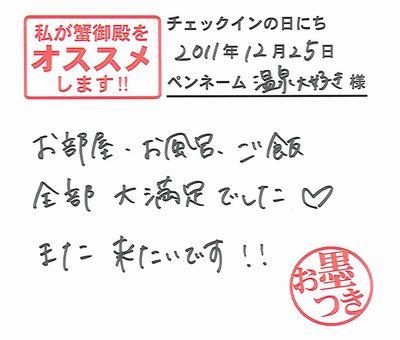 私が蟹御殿を
オススメ
します!!
チェックインの日にち
2011年12月25日
ペンネーム 温泉大好き 様
お部屋、お風呂、ご飯
全部 大満足でした♡
また 来たいです!!
お墨つき